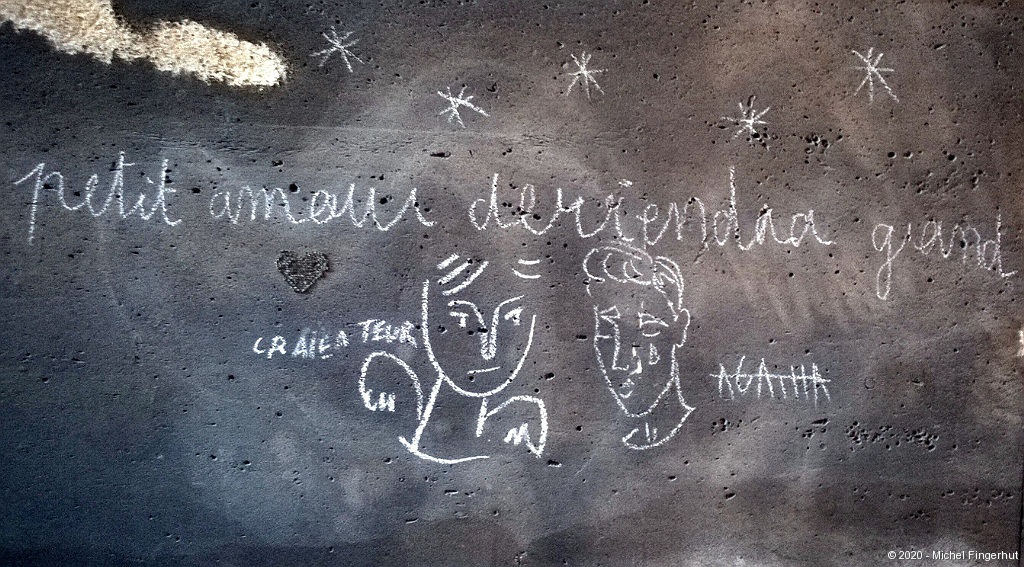 petit amour deviendra grand
CRAIEA TEUR
AGATHA
© 2020 - Michel Fingerhut